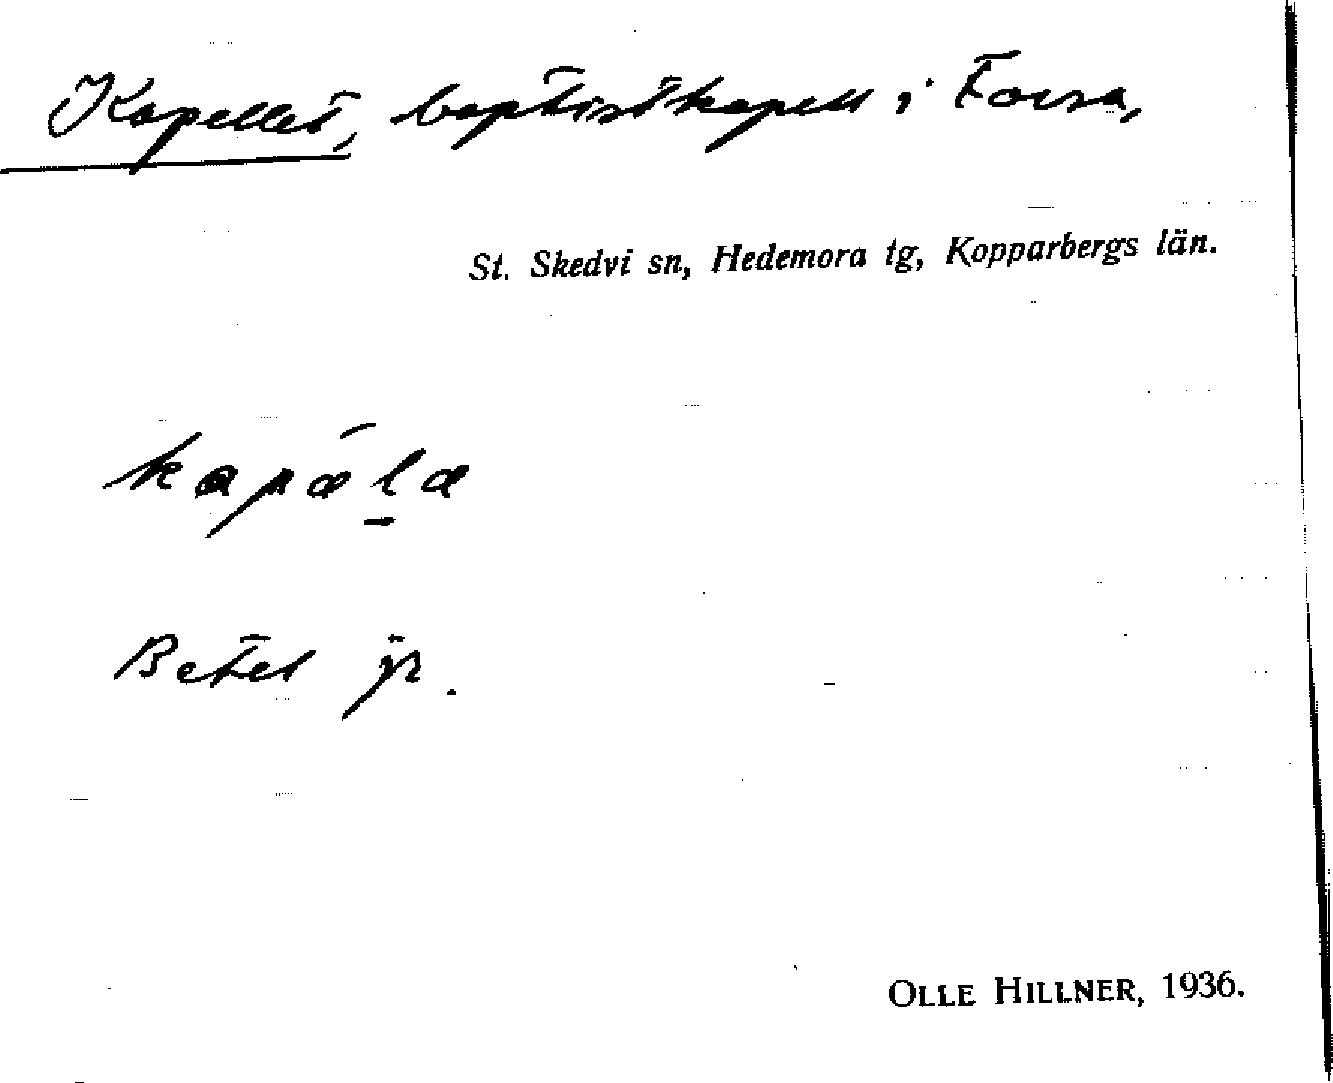 Kapellet, baptistkapell i Forsa,
St. Skedvi sn, Hedemora tg, Kopparbergs län.
kapǽla
Betel jr.
OLLE HILLNER, 1936.